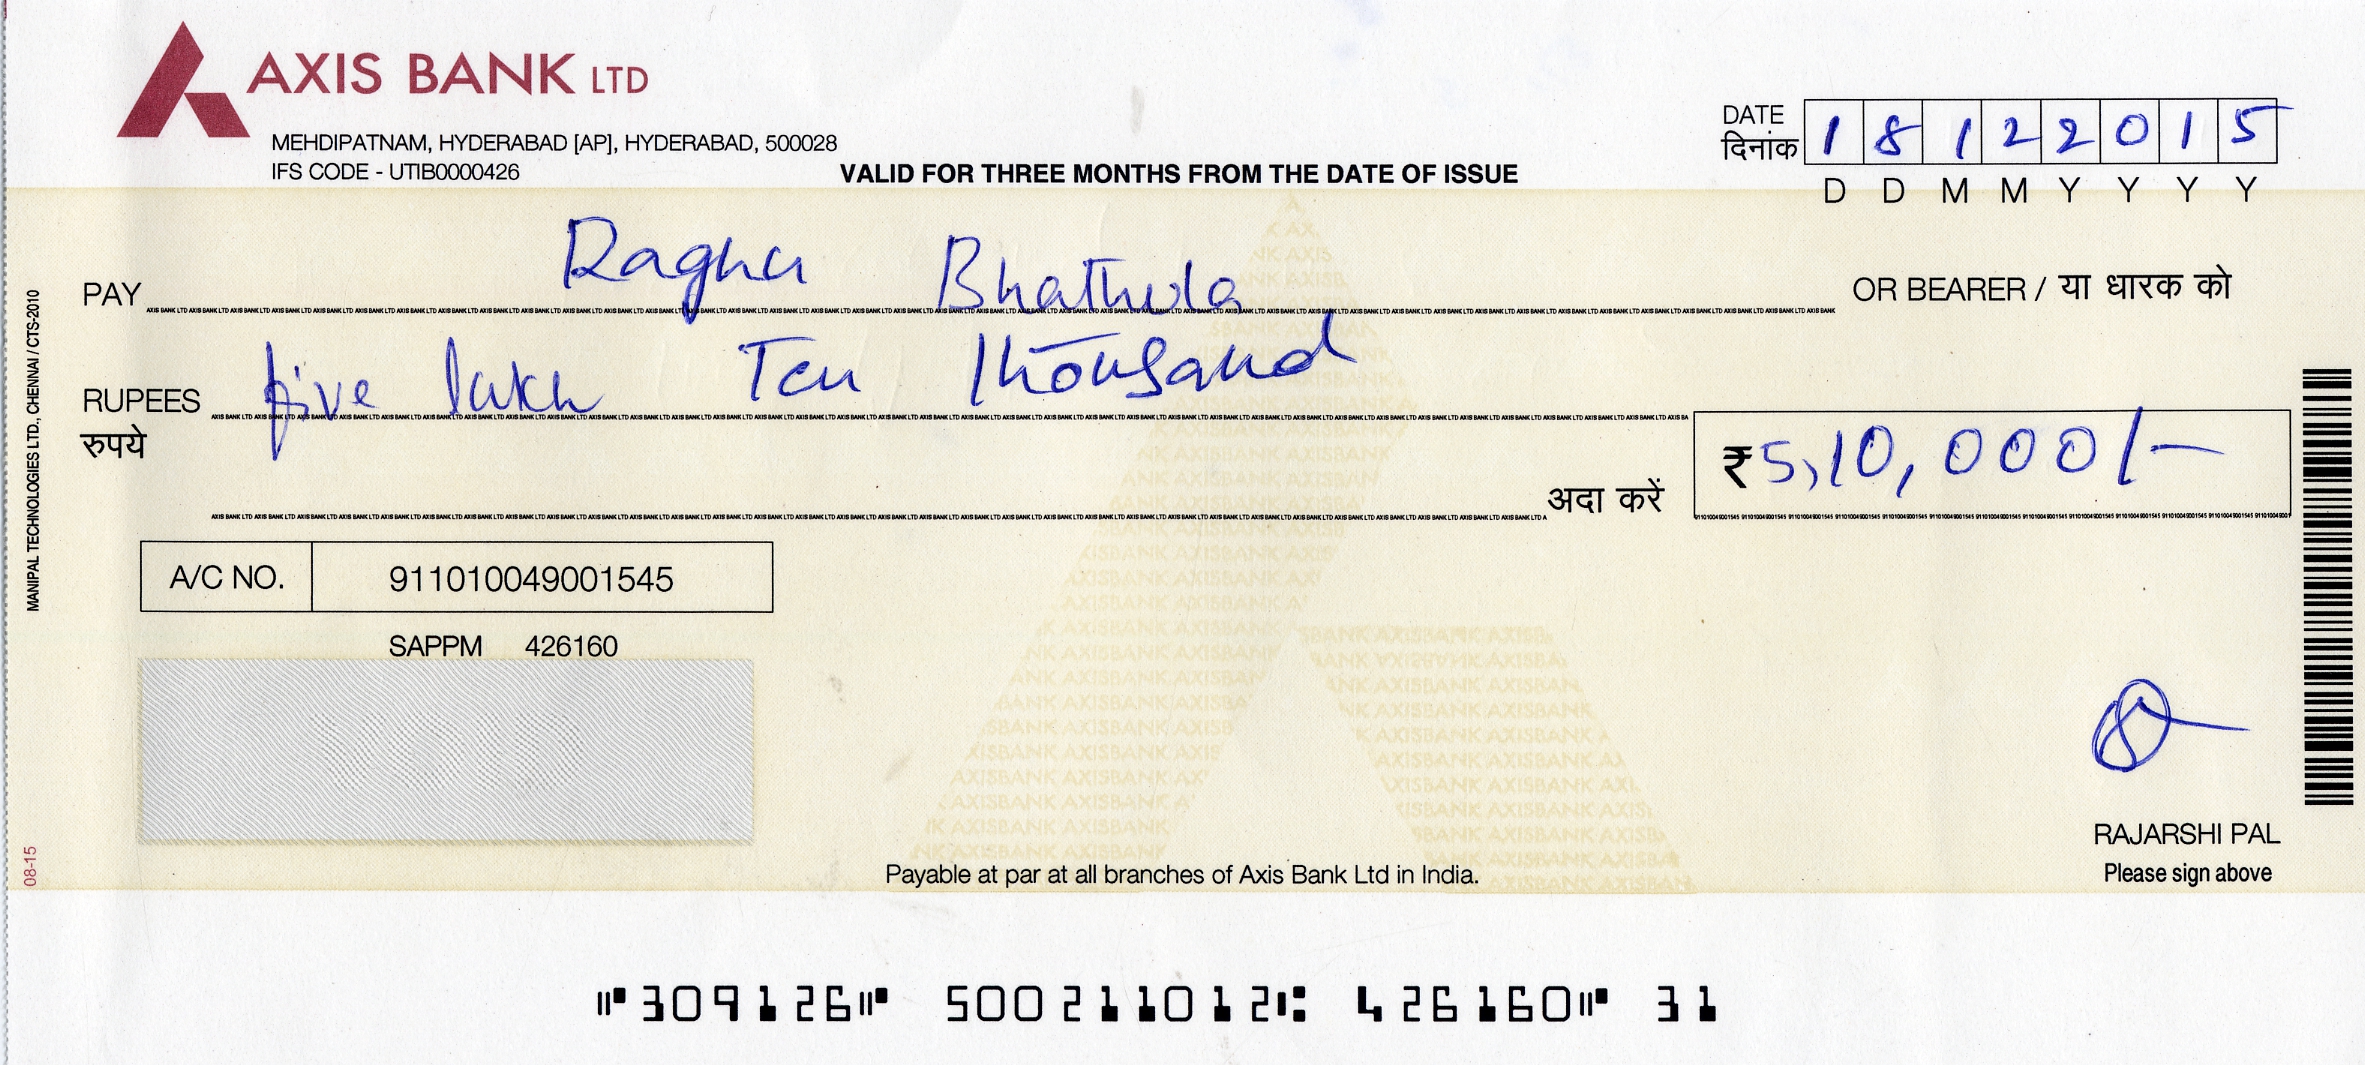 AXIS BANK LTD
MEHDIPATNAM, HYDERABAD [AP], HYDERABAD, 500028
IFS CODE - UTIB0000426
VALID FOR THREE MONTHS FROM THE DATE OF ISSUE
DATE
दिनांक
1 8 1 2 2 0 1 5
D D M M Y Y Y Y
PAY Raghu Bhathula OR BEARER / या धारक को
RUPEES five lakh Ten Thousand
रुपये
अदा करें ₹ 5,10,000/-
A/C NO. 911010049001545
SAPPM 426160
VOID
RAJARSHI PAL
Please sign above
Payable at par at all branches of Axis Bank Ltd in India.
MANIPAL TECHNOLOGIES LTD., CHENNAI / CTS-2010
08-15
⑈309126⑈ 500211012⑆ 426160⑈ 31